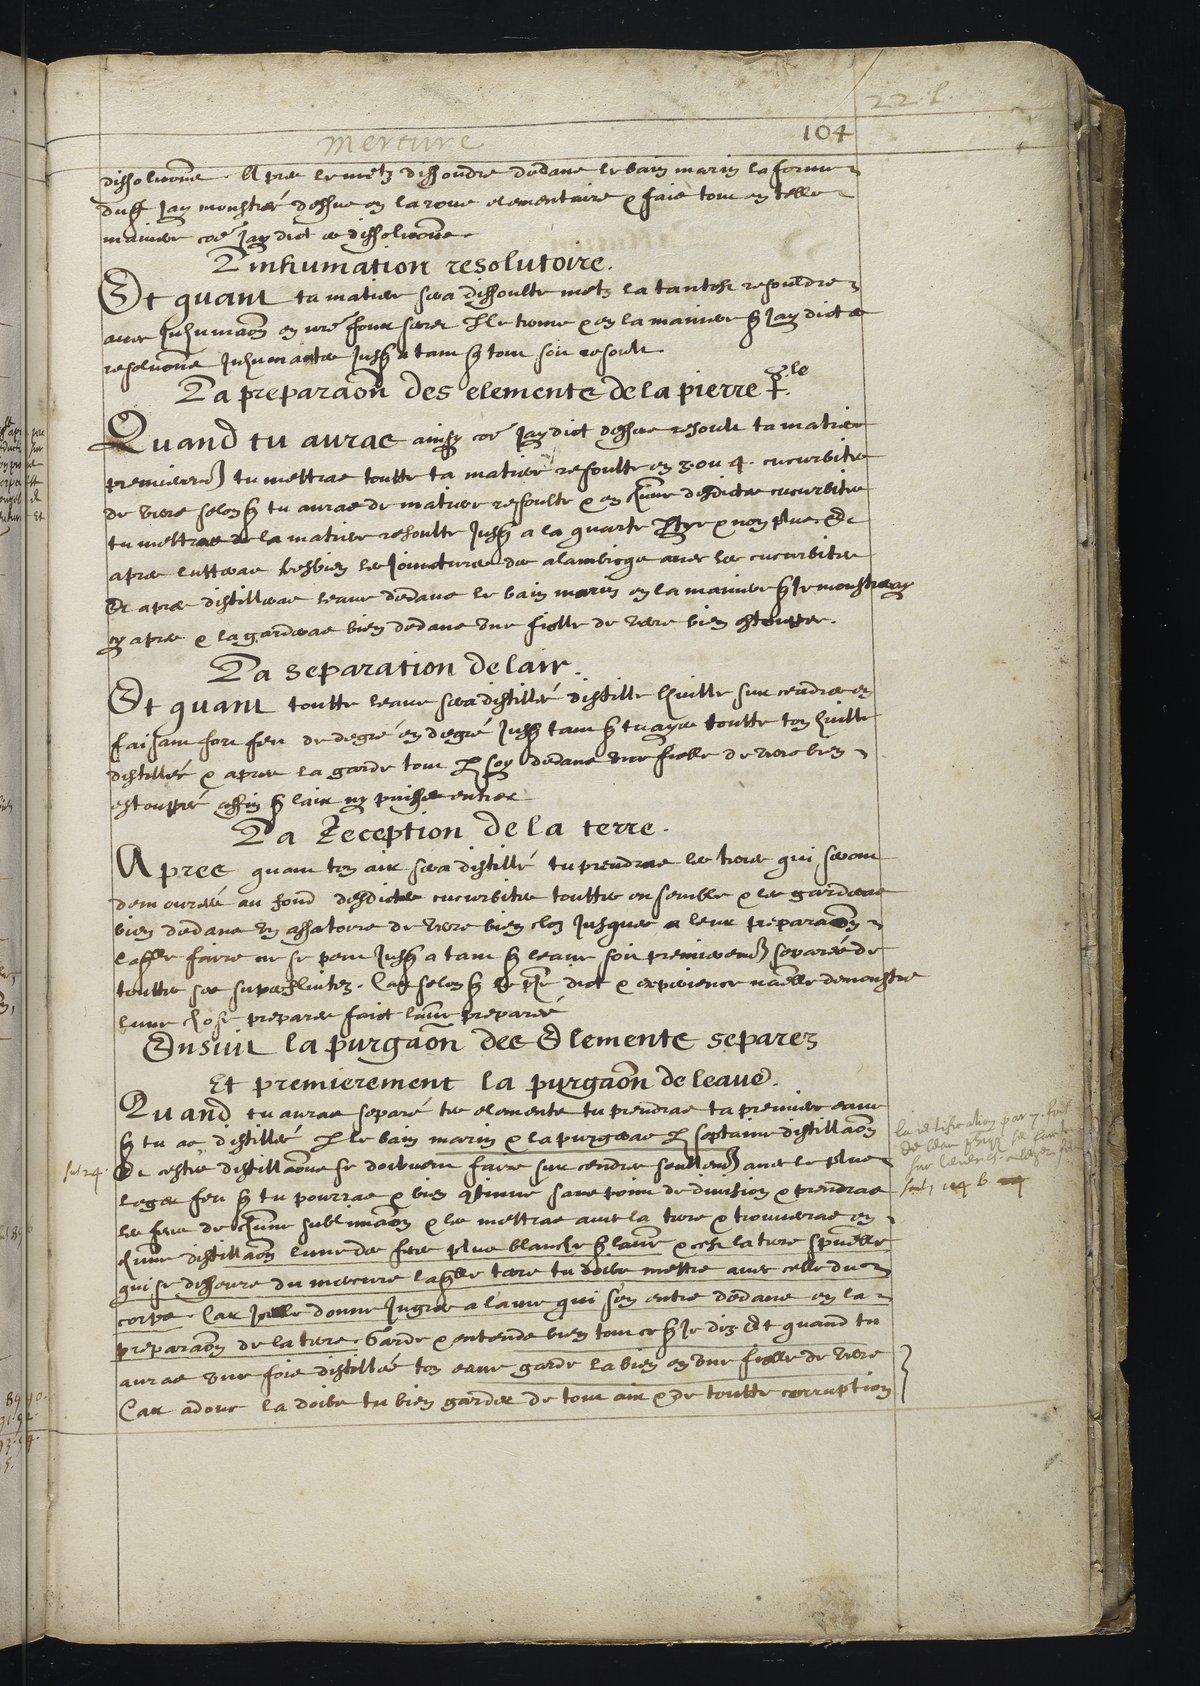 22. l.
104
mercure
dissoluõne. Apres le metz dissoudre dedans le bain marin la forme
duq̃ Jay monstré dessus en la roue elementaire & fais tout en telle
maniere cõe Jay dict es dissoluõns.
L'inhumation resolutoire.
Et quant ta matiere sera dissoulte metz la tantost resouldre
avec Inhumaõn en vr̃e four secret & en la maniere q̃ Jay dict es
resoluõns Inhumantes Jusq̃ a tant q̃ tout soit resoult.
La preparaõn des elements de la pierre
Quand tu auras ainsy cõe Jay dict dessus resoult ta matiere
premierem̃ tu mettras toutte ta matiere resoulte en 3 ou 4. cucurbites
de verre selon q̃ tu auras de matiere resoulte & en chũne desdictes cucurbites
tu mettras de la matiere resoulte Jusq̃ a la quarte ptye & non plus. Et
apres lutteras tresbien les Joinctures des alambicqs avec les cucurbites
Et apres distilleras leaue dedans le bain marin en la maniere q̃ Je monstreray
cy apres & la garderas bien dedans une fiolle de verre bien estouppee.
La separation de lair.
Et quant toutte leaue sera distillée distille lhuille sur cendres en
faisant fort feu de degré en degré Jusq̃ tant q̃ tu ayes toutte ton huille
distillée & apres la garde tout p soy dedans une fiolle de verre bien
estouppé affin q̃ lair ny puisse entrer
La Reception de la terre.
Apres quant ton air sera distillé tu prendras les terres qui seront
demourées au fond desdictes cucurbites touttes ensemble & les garderas
bien dedans un assatoire de verre bien clos Jusques a leur preparaõn
laq̃lle faire ne se peut Jusq̃ a tant q̃ leaue soit premierem̃ separée de
touttes ses superfluitez. Car selon q̃ le dict & experience nãlle demonstre
lune chose preparee faict lautre preparée
Ensuit la purgaõn des Elements separez
Et premierement la purgaõn de leaue.
Quand tu auras separé tes elements tu prendras ta premiere eaue
q̃ tu as distillée p le bain marin & la purgeras p septaine distillaõn
Et cestes distillaõns se doibuent faire sur cendres seullem̃ avec le plus
leger feu q̃ tu pourras & bien qtinue sans point de division & prendras
les feces de chũne sublimaõn & les mettras avec la terre & trouveras en
chũne distillaõn lune des feces plus blanche q̃ lautre & cest la terre spũelle
qui se dessevre du mercure laq̃lle terre tu doibs mettre avec celle du
corps. Car Icelle donne Ingres a lame qui sen entre dedans en la
preparaõn de la terre. Garde & entends bien tout ce q̃ Je dis. Et quand tu
auras une fois distillée ton eaue garde la bien en une fiolle de verre
Car adonc la doibs tu bien garder de tout air & de toutte corruption
la rectification par 7. fois
de leau
sur